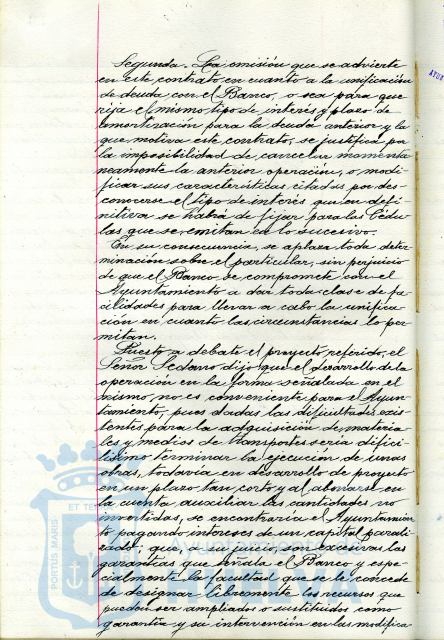 Segunda. La omisión que se advierte
en este contrato en cuanto a la unificación
de deuda con el Banco, o sea para que
rija el mismo tipo de interés y plazo de
amortización para la deuda anterior y la
que motiva este contrato, se justifica por
la imposibilidad de cancelar momentá
neamente la anterior operación, o modi
ficar sus características citadas por des-
conocerse el tipo de interés que en defi-
nitiva se habrá de fijar para las Cédu
las que se emitan en lo sucesivo.
En su consecuencia, se aplaza toda deter
minación sobre el particular, sin perjuicio
de que el Banco se compromete con el
Ayuntamiento a dar toda clase de fa
cilidades para llevar a cabo la unifica
ción en cuanto las circunstancias lo per
mitan.
Puesto a debate el proyecto referido, el
Señor Seoane dijo que el desarrollo de la
operación en la forma señalada en el
mismo, no es conveniente para el Ayun-
tamiento, pues dadas las dificultades exis
tentes para la adquisición de materia
les y medios de transportes sería difici
lísimo terminar la ejecución de unas
obras, todavía en desarrollo de proyecto
en un plazo tan corto y al abonarse en
la cuenta auxiliar las cantidades no
invertidas, se encontraría el Ayuntamien
to pagando intereses de un capital parali
zado; que, a su juicio son excesivas las
garantías que señala el Banco y espe-
cialmente la facultad que se le concede
de designar libremente los recursos que
puedan ser ampliados o sustituidos como
garantía y su intervención en las modifica
PORTUS MARIS
ET TE
Ayuntamiento de
AYUN